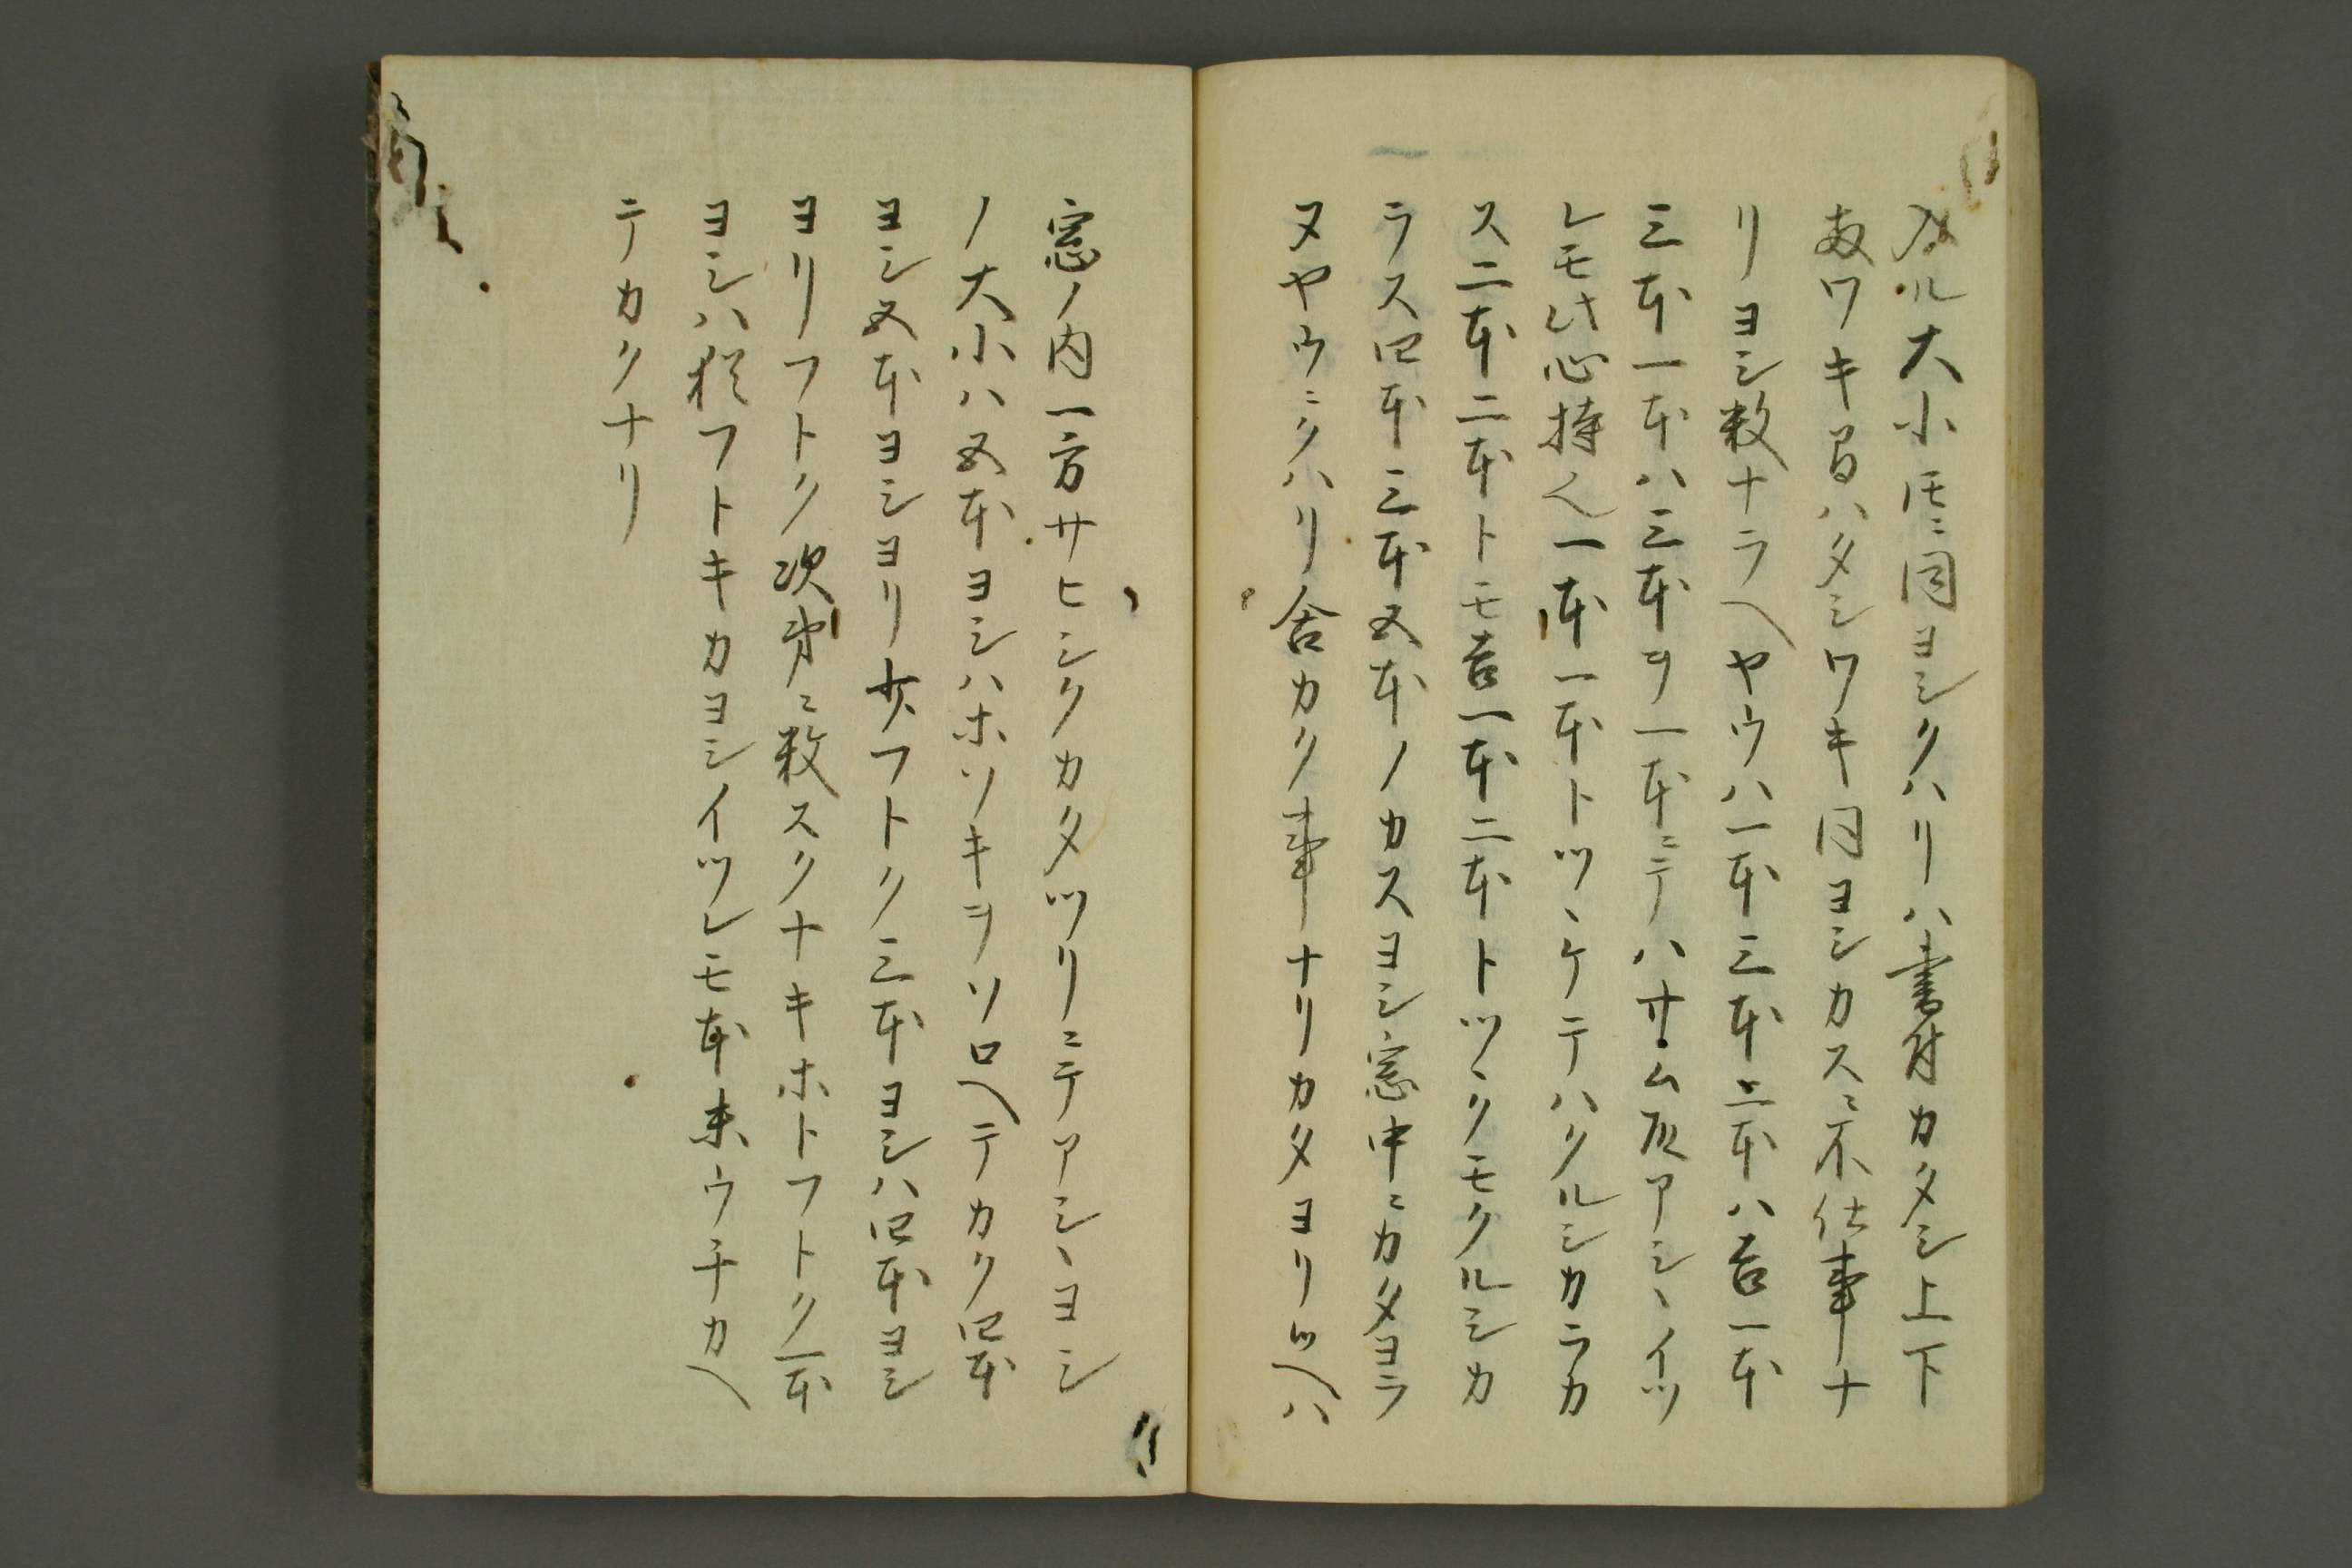 入ル大小モニ同ヨシクハリハ書付カタシ上下
両ワキ召ハタシワキ同ヨシカスニ不仕事ナ
リヨシ数ナラヘヤウハ一本三本二本ハ吉一本
三本一本ハ三本ヲ一本ニテハサム故アシヽイツ
レモ此心持ヘ一本一本トツヽケテハクルシカラカ
ス二本二本トモ吉一本二本トツヽクモクルシカ
ラス四本三本五本ノカスヨシ窓中ニカタヨラ
ヌヤウニクハリ合カク事ナリカタヨリツヘハ
窓ノ内一方サヒシクカタツリニテアシヽヨシ
ノ大小ハ五本ヨシハホソキヲソロヘテカク四本
ヨシ五本ヨシヨリ少フトク三本ヨシハ四本ヨシ
ヨリフトク次第ニ数スクナキホトフトク一本
ヨシハ猶フトキカヨシイツレモ本末ウチカヘ
テカクナリ